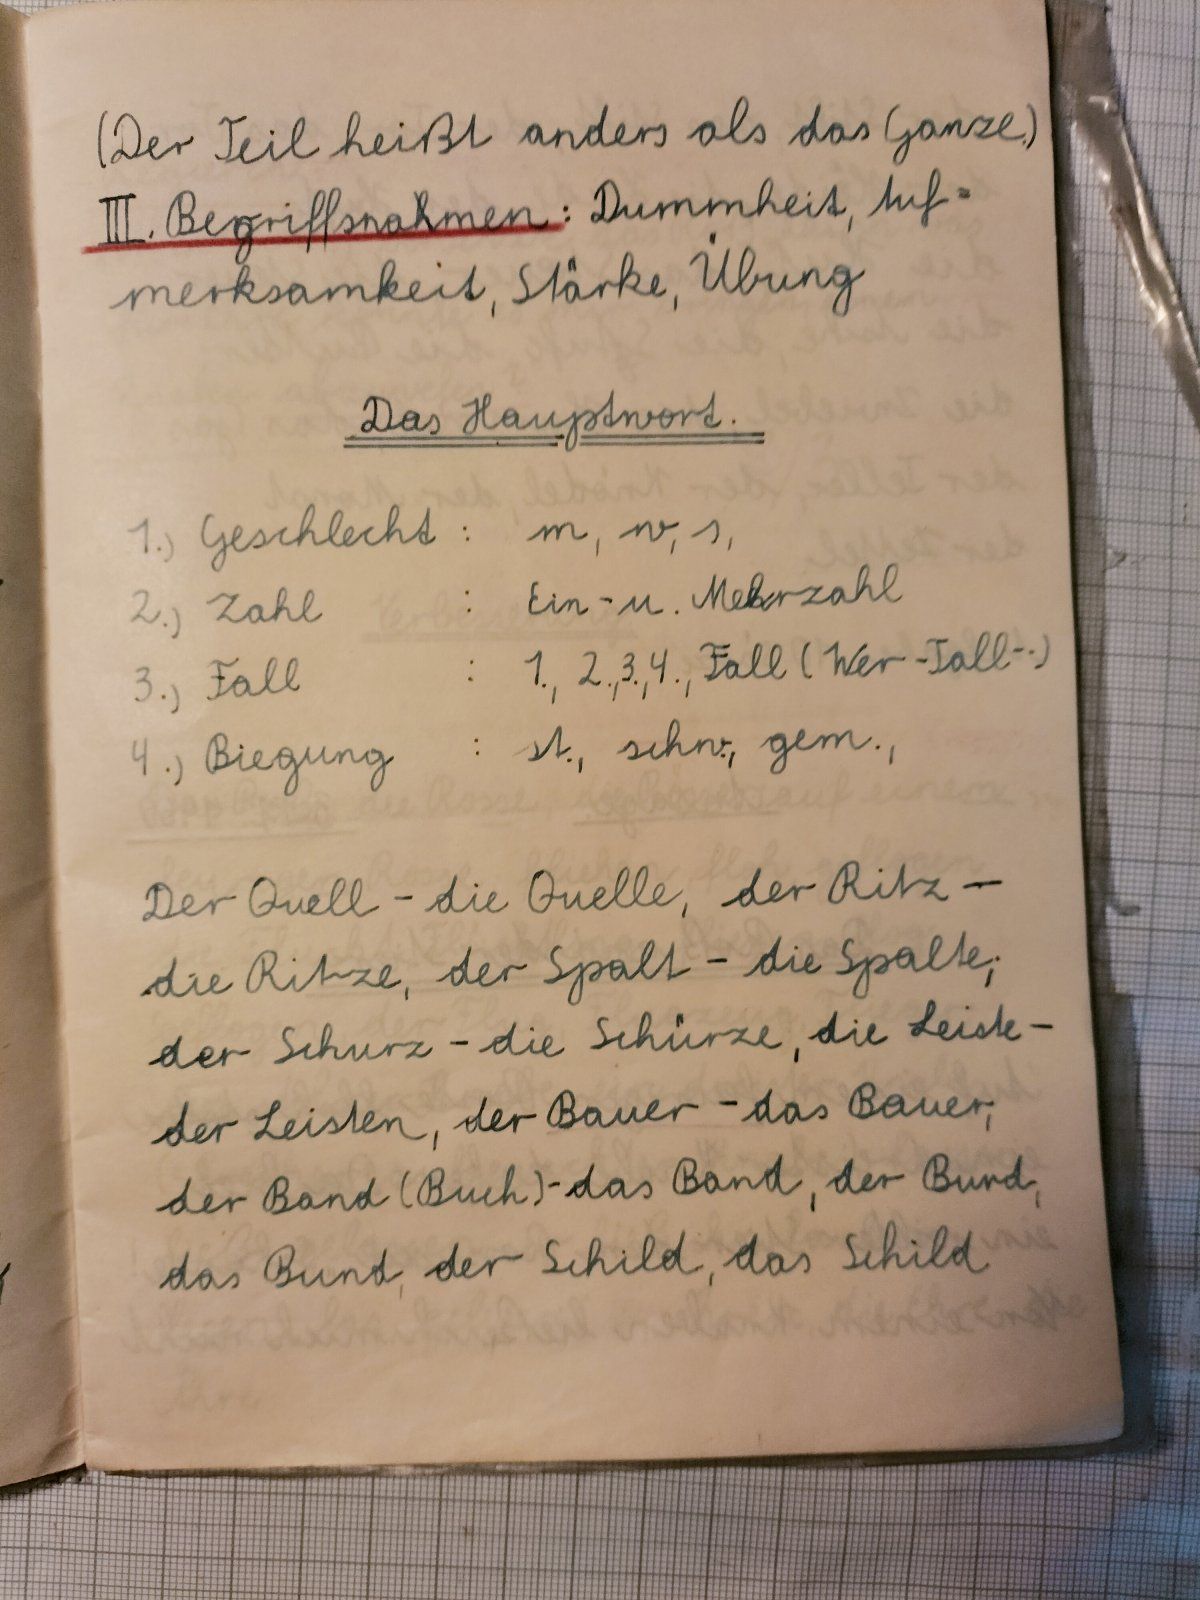 (Der Teil heißt anders als das Ganze.)
III. Begriffsnahmen: Dummheit, Auf=
merksamkeit, Stärke, Übung
Das Hauptwort.
1.) Geschlecht : m, w, s,
2.) Zahl : Ein-u. Mehrzahl
3.) Fall : 1., 2., 3., 4., Fall (Wer-Fall-.)
4.) Biegung : st., schw., gem.,
Der Quell - die Quelle, der Ritz -
die Ritze, der Spalt - die Spalte,
der Schurz - die Schürze, die Leiste -
der Leisten, der Bauer - das Bauer,
der Band (Buch) - das Band, der Bund,
das Bund, der Schild, das Schild